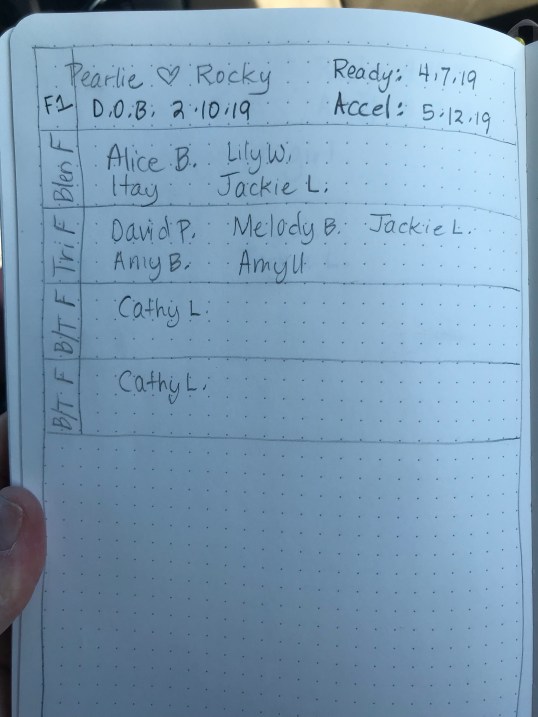 Pearlie ♡ Rocky Ready: 4.7.19
F1 D.O.B. 2.10.19 Accel: 5.12.19
Blen F Alice B. Lily W.
Itay Jackie L.
Tri F David P. Melody B. Jackie L.
Amy B. Amy U
B/T F Cathy L.
B/T F Cathy L.